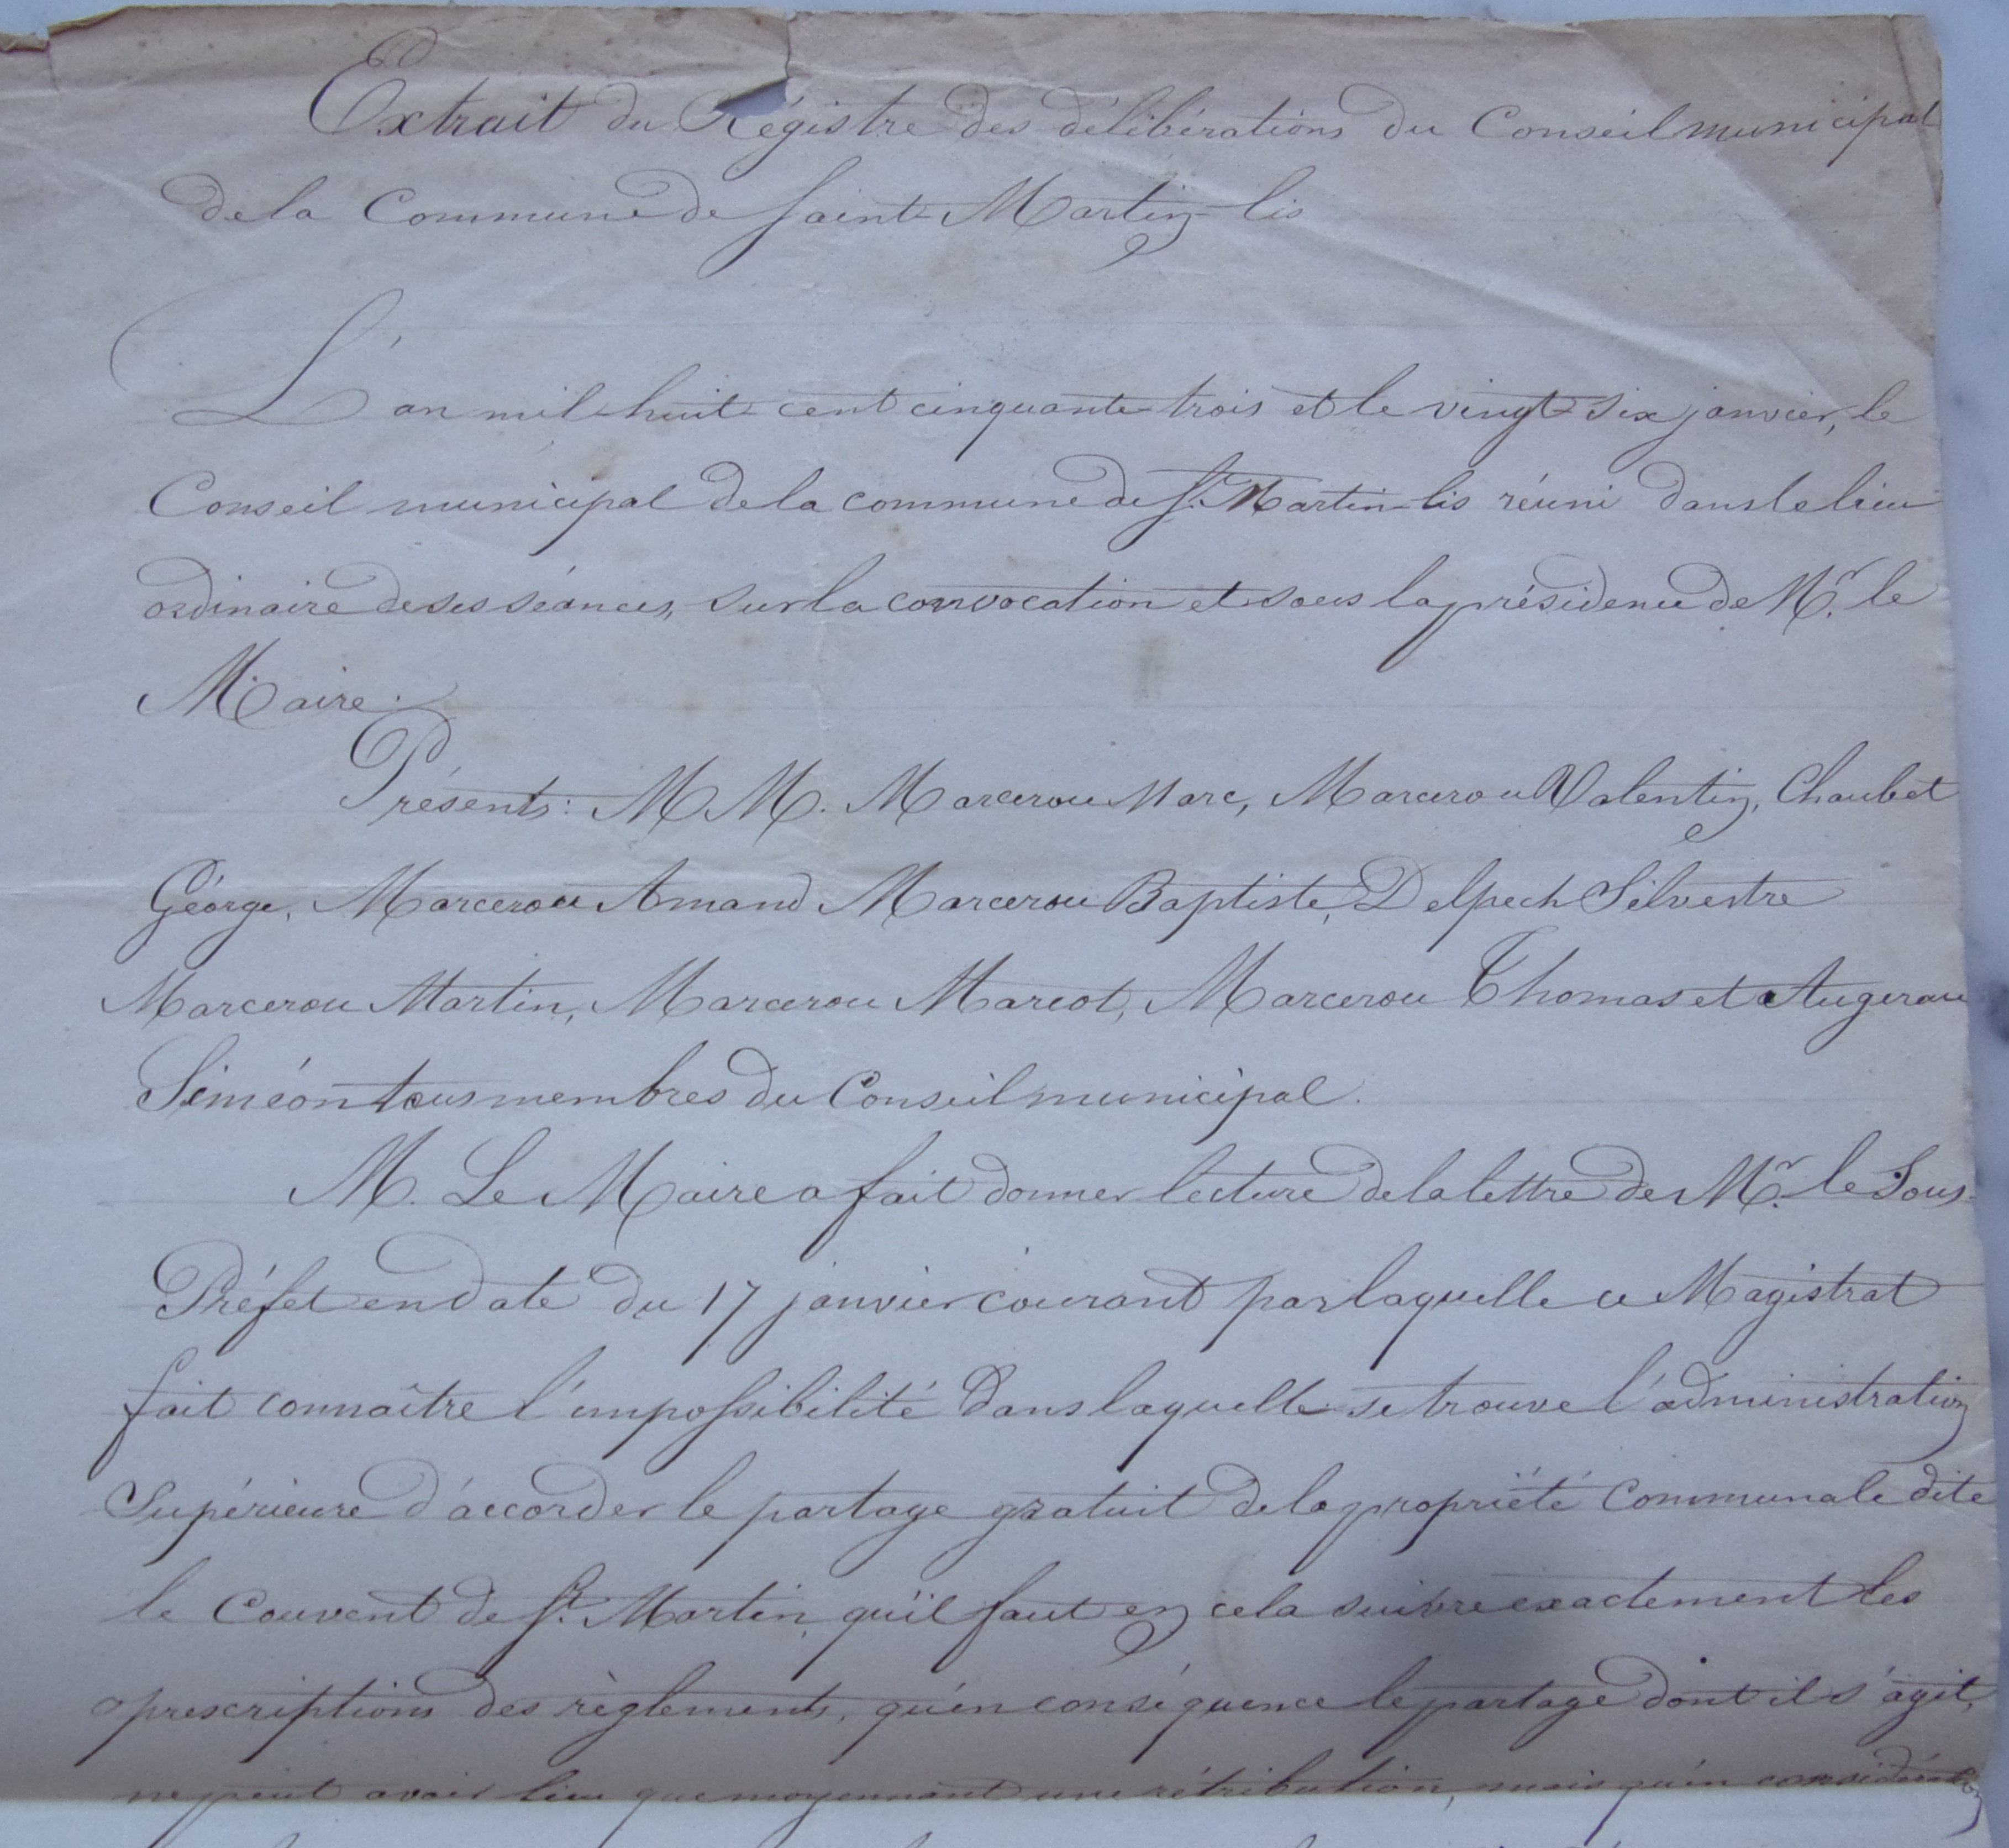 Extrait du Régistre des délibérations du Conseil municipal
de la Commune de Saint-Martin-lis
L'an mil huit cent cinquante trois et le vingt-six janvier, le
Conseil municipal de la commune de St. Martin-lis réuni dans le lieu
ordinaire de ses séances, sur la convocation et sous la présidence de Mr. le
Maire.
Présents: MM. Marcerou Marc, Marcerou Valentin, Chaubet
Géorge, Marcerou Amand Marcerou Baptiste, Delpech Silvestre
Marcerou Martin, Marcerou Marcot, Marcerou Thomas et Augerau
Siméon tous membres du Conseil municipal.
M. Le Maire a fait donner lecture de la lettre de Mr. le Sous-
Préfet en date du 17 janvier courant par laquelle ce Magistrat
fait connaître l'impossibilité dans laquelle se trouve l'administration
Supérieure d'accorder le partage gratuit de la propriété Communale dite
le Couvent de St. Martin, qu'il faut en cela suivre exactement les
prescriptions des règlements, qu'en conséquence le partage dont il s'agit,
ne peut avoir lieu que moyennant une rétribution, mais qu'en considération